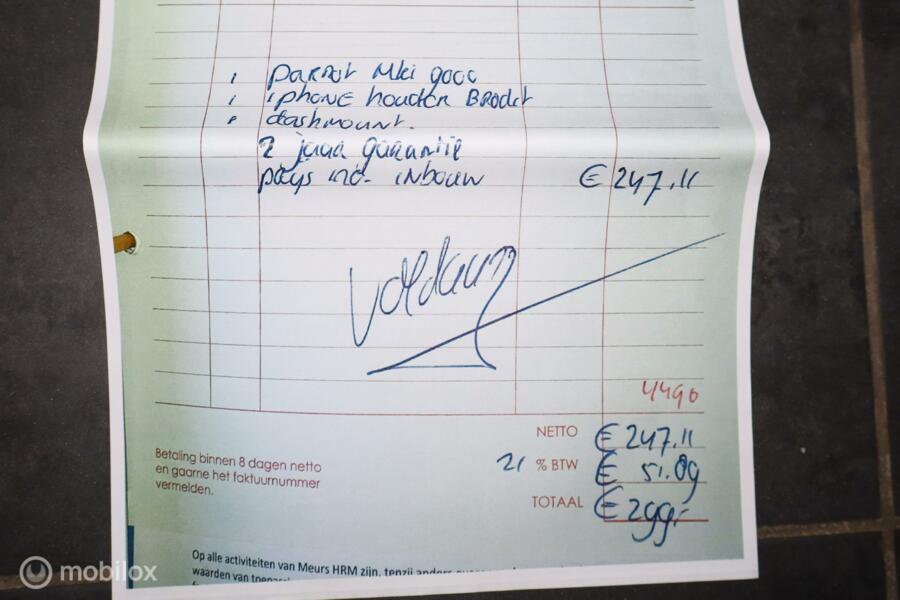 1 Parrot Mki 9000
1 iphone houder Brodit
1 dashmount.
2 jaar garantie
prijs incl. inbouw € 247.11
Voldaan
4490
NETTO € 247.11
21 % BTW € 51.89
TOTAAL € 299,-
Betaling binnen 8 dagen netto
en gaarne het faktuurnummer
vermelden.
Op alle activiteiten van Meurs HRM zijn, tenzij anders
waarden van
mobilox